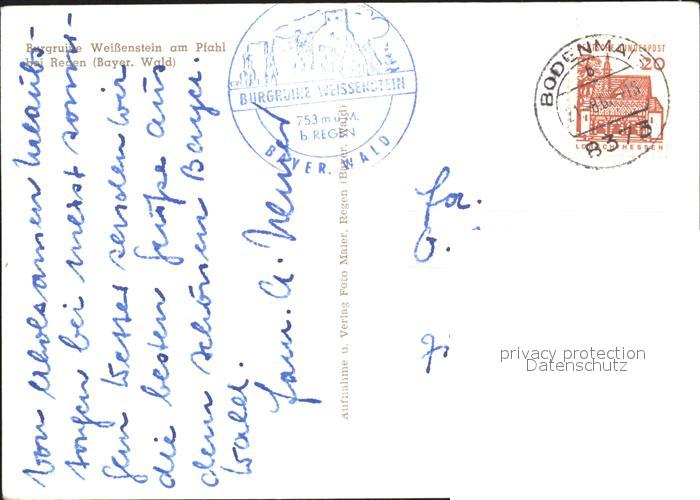 Burgruine Weißenstein am Pfahl
bei Regen (Bayer. Wald)
BURGRUINE WEISSENSTEIN
753 m ü. M.
b. REGEN
BAYER. WALD
BODENMAIS
b
8373
DEUTSCHE BUNDESPOST
20
LORSCH HESSEN
Von erholsamen Urlaubs-
tagen bei meist sonni-
gem Wetter senden wir
die besten Grüße aus
dem schönen Bayer.
Wald.
Fam. A.
Aufnahme u. Verlag Foto Maier, Regen (Bayer. Wald)
Fa.
G.
privacy protection
Datenschutz